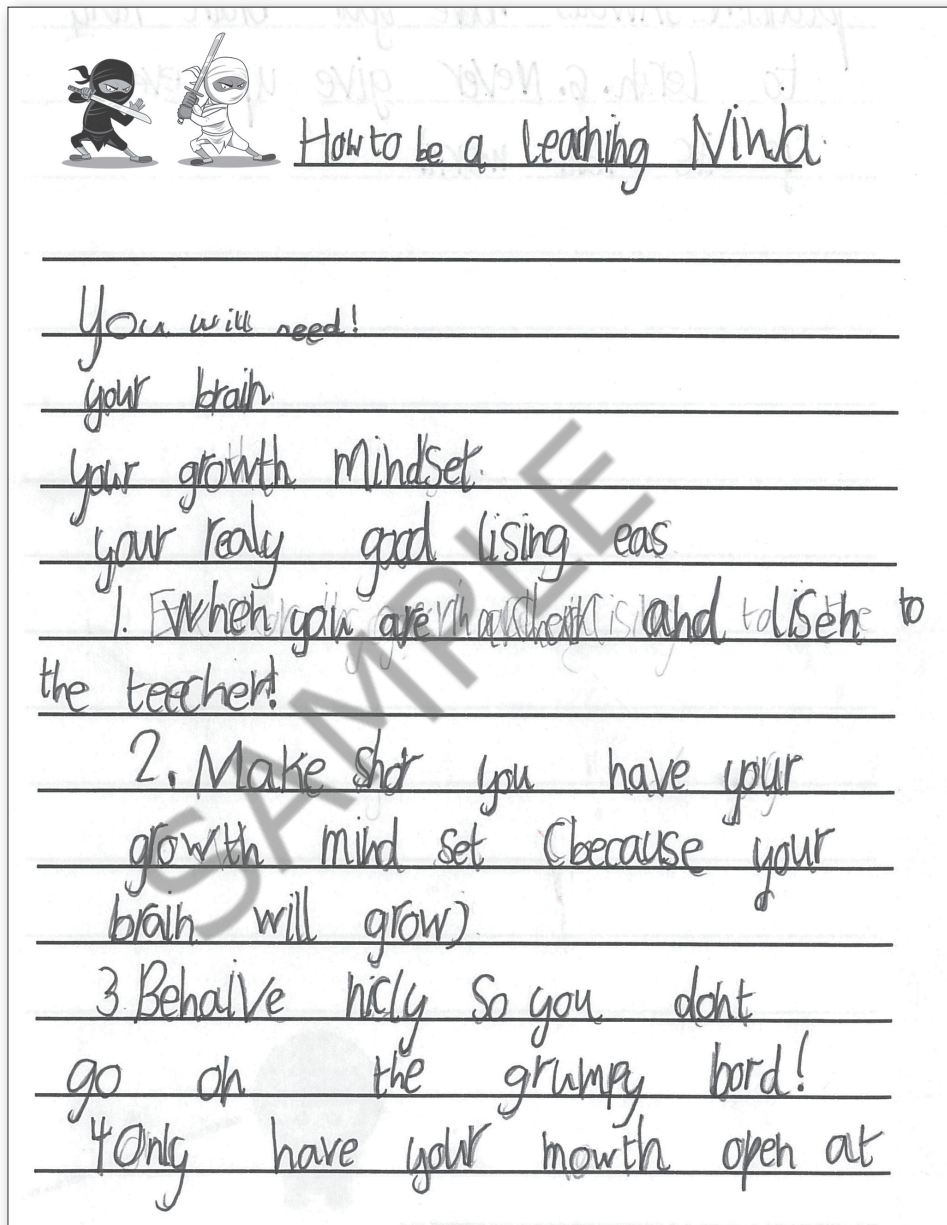 How to be a Learning Ninja.
You will need!
your brain
your growth Mindset.
your realy good lising eas
1. When you are and lisen to
the teecher!
2. Make shor you have your
growth mind set (because your
brain will grow)
3. Behaive nicly So you dont
go on the grumpy bord!
4 Only have your mowth open at
SAMPLE